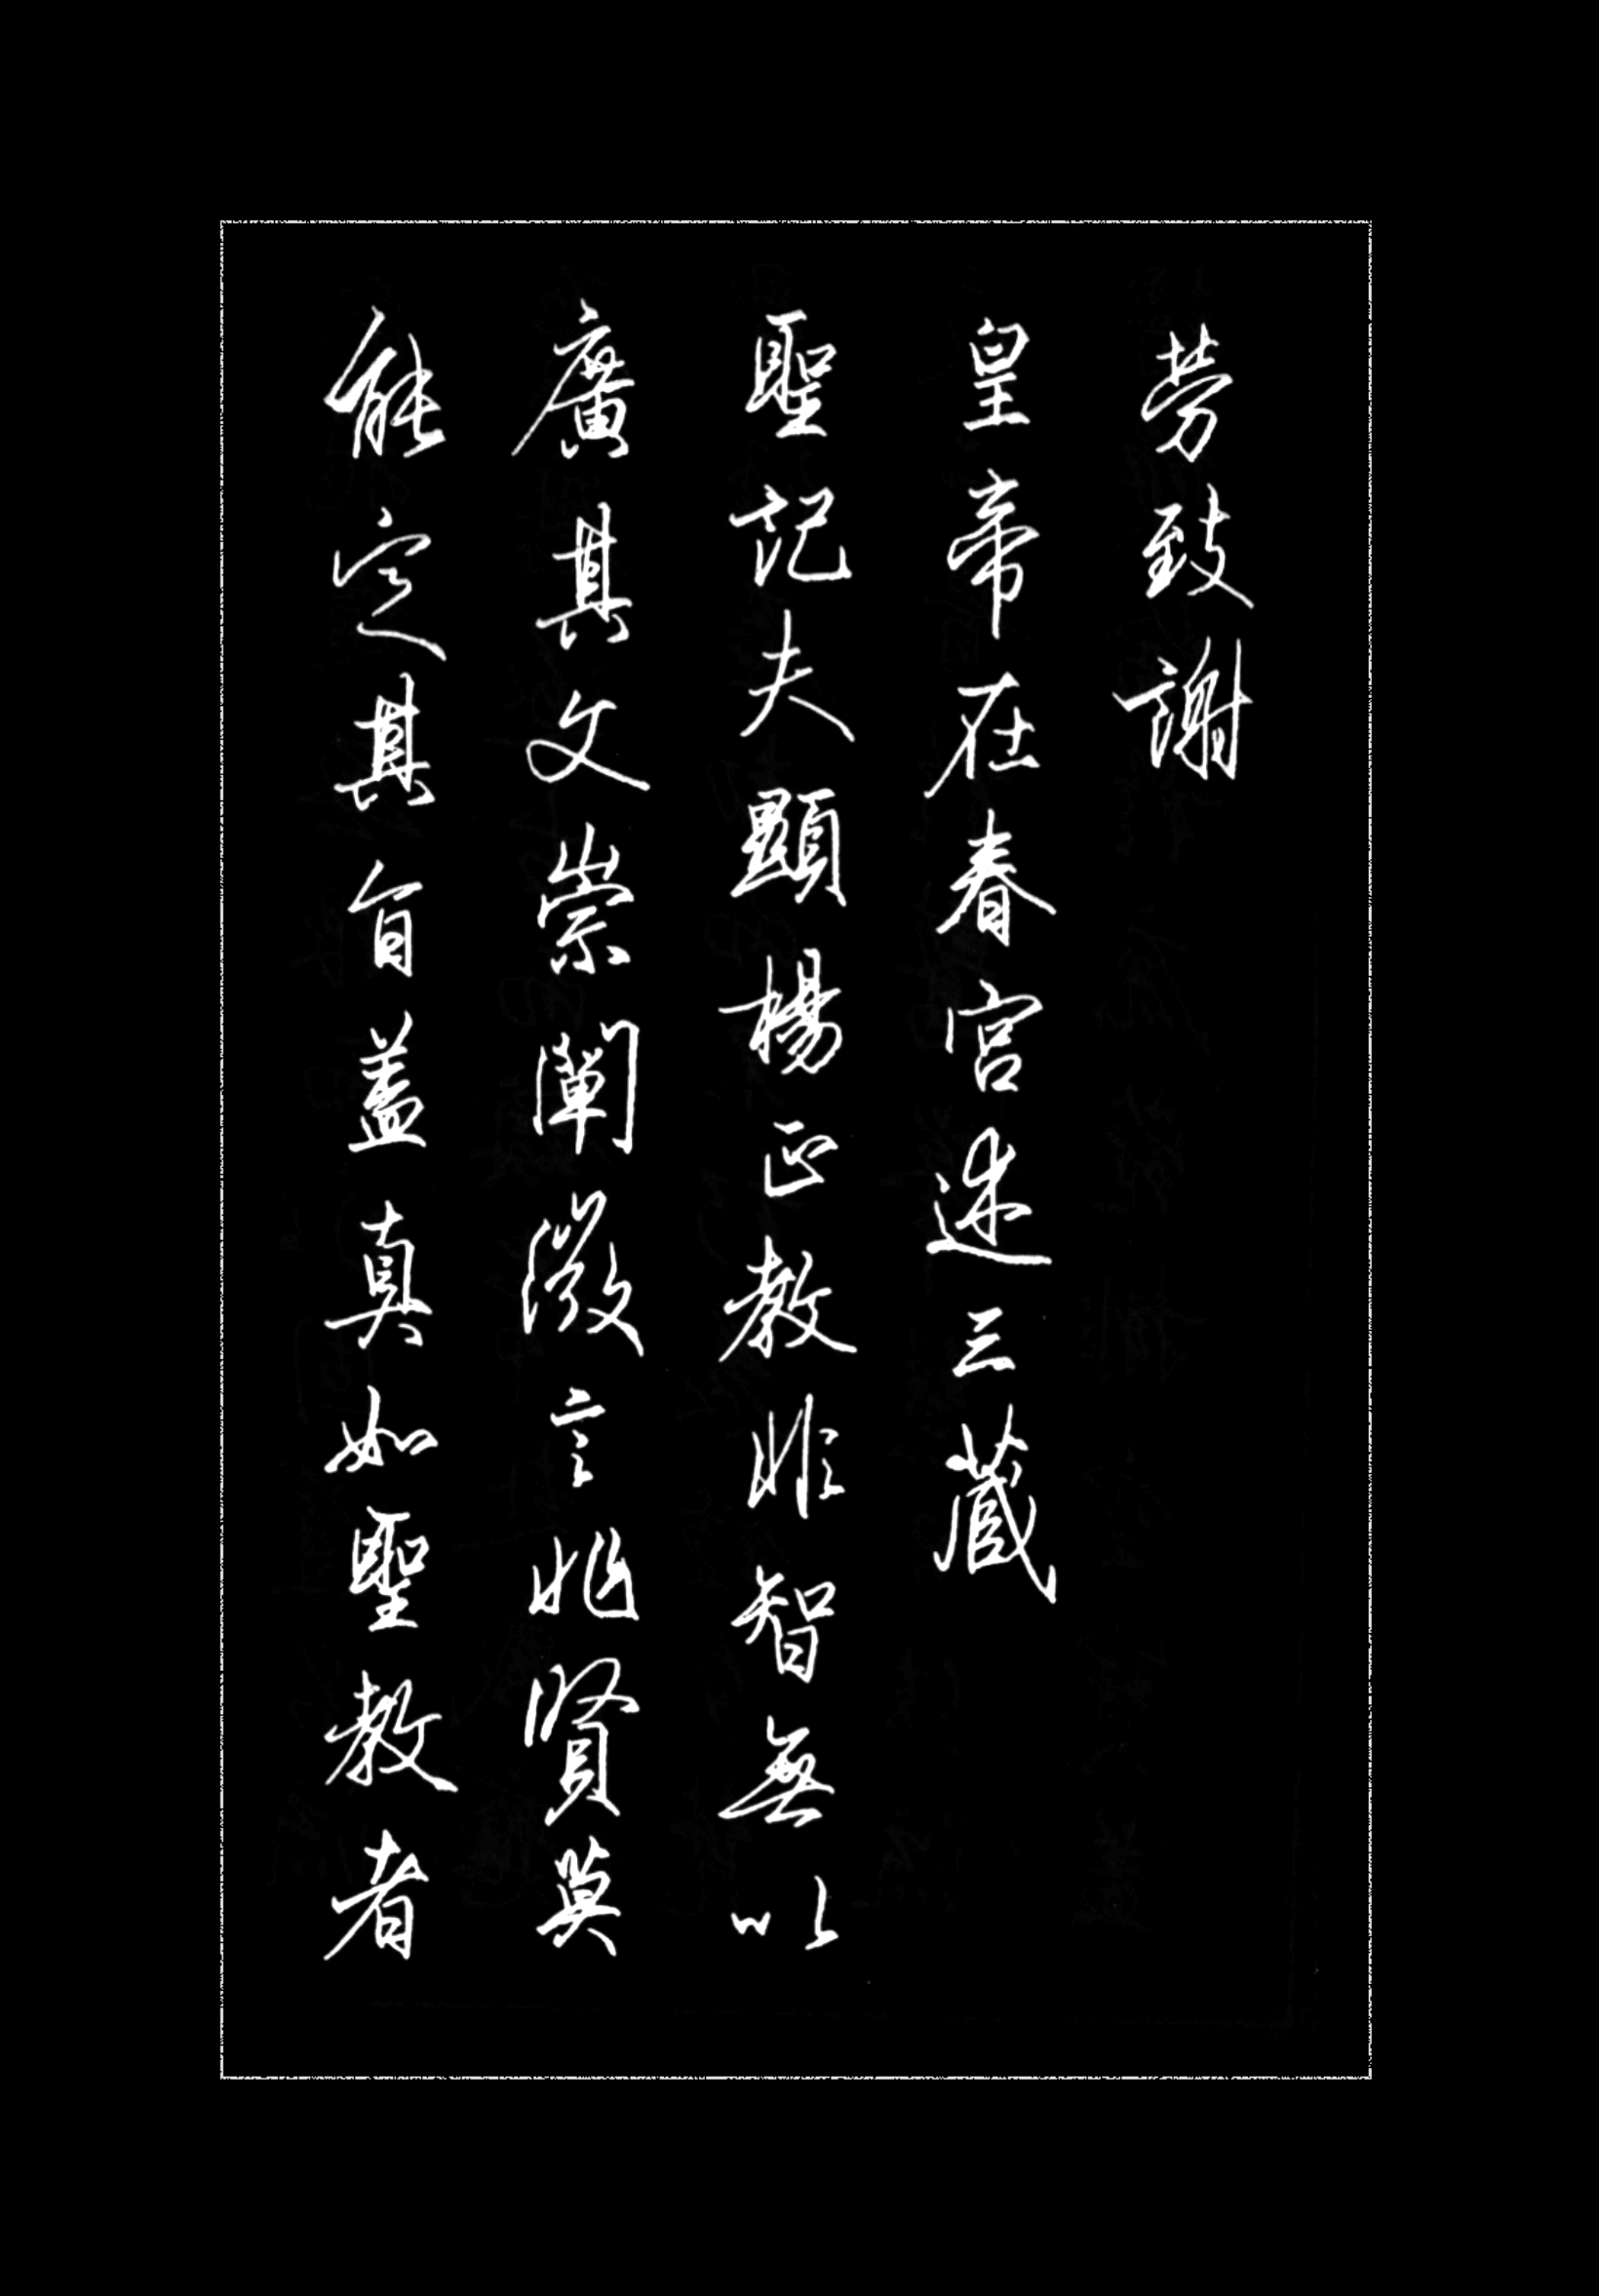 劳致謝
皇帝在春宮述三藏
聖記夫顯楊正教非智無以
廣其文崇闡微言非賢莫
能定其旨蓋真如聖教者